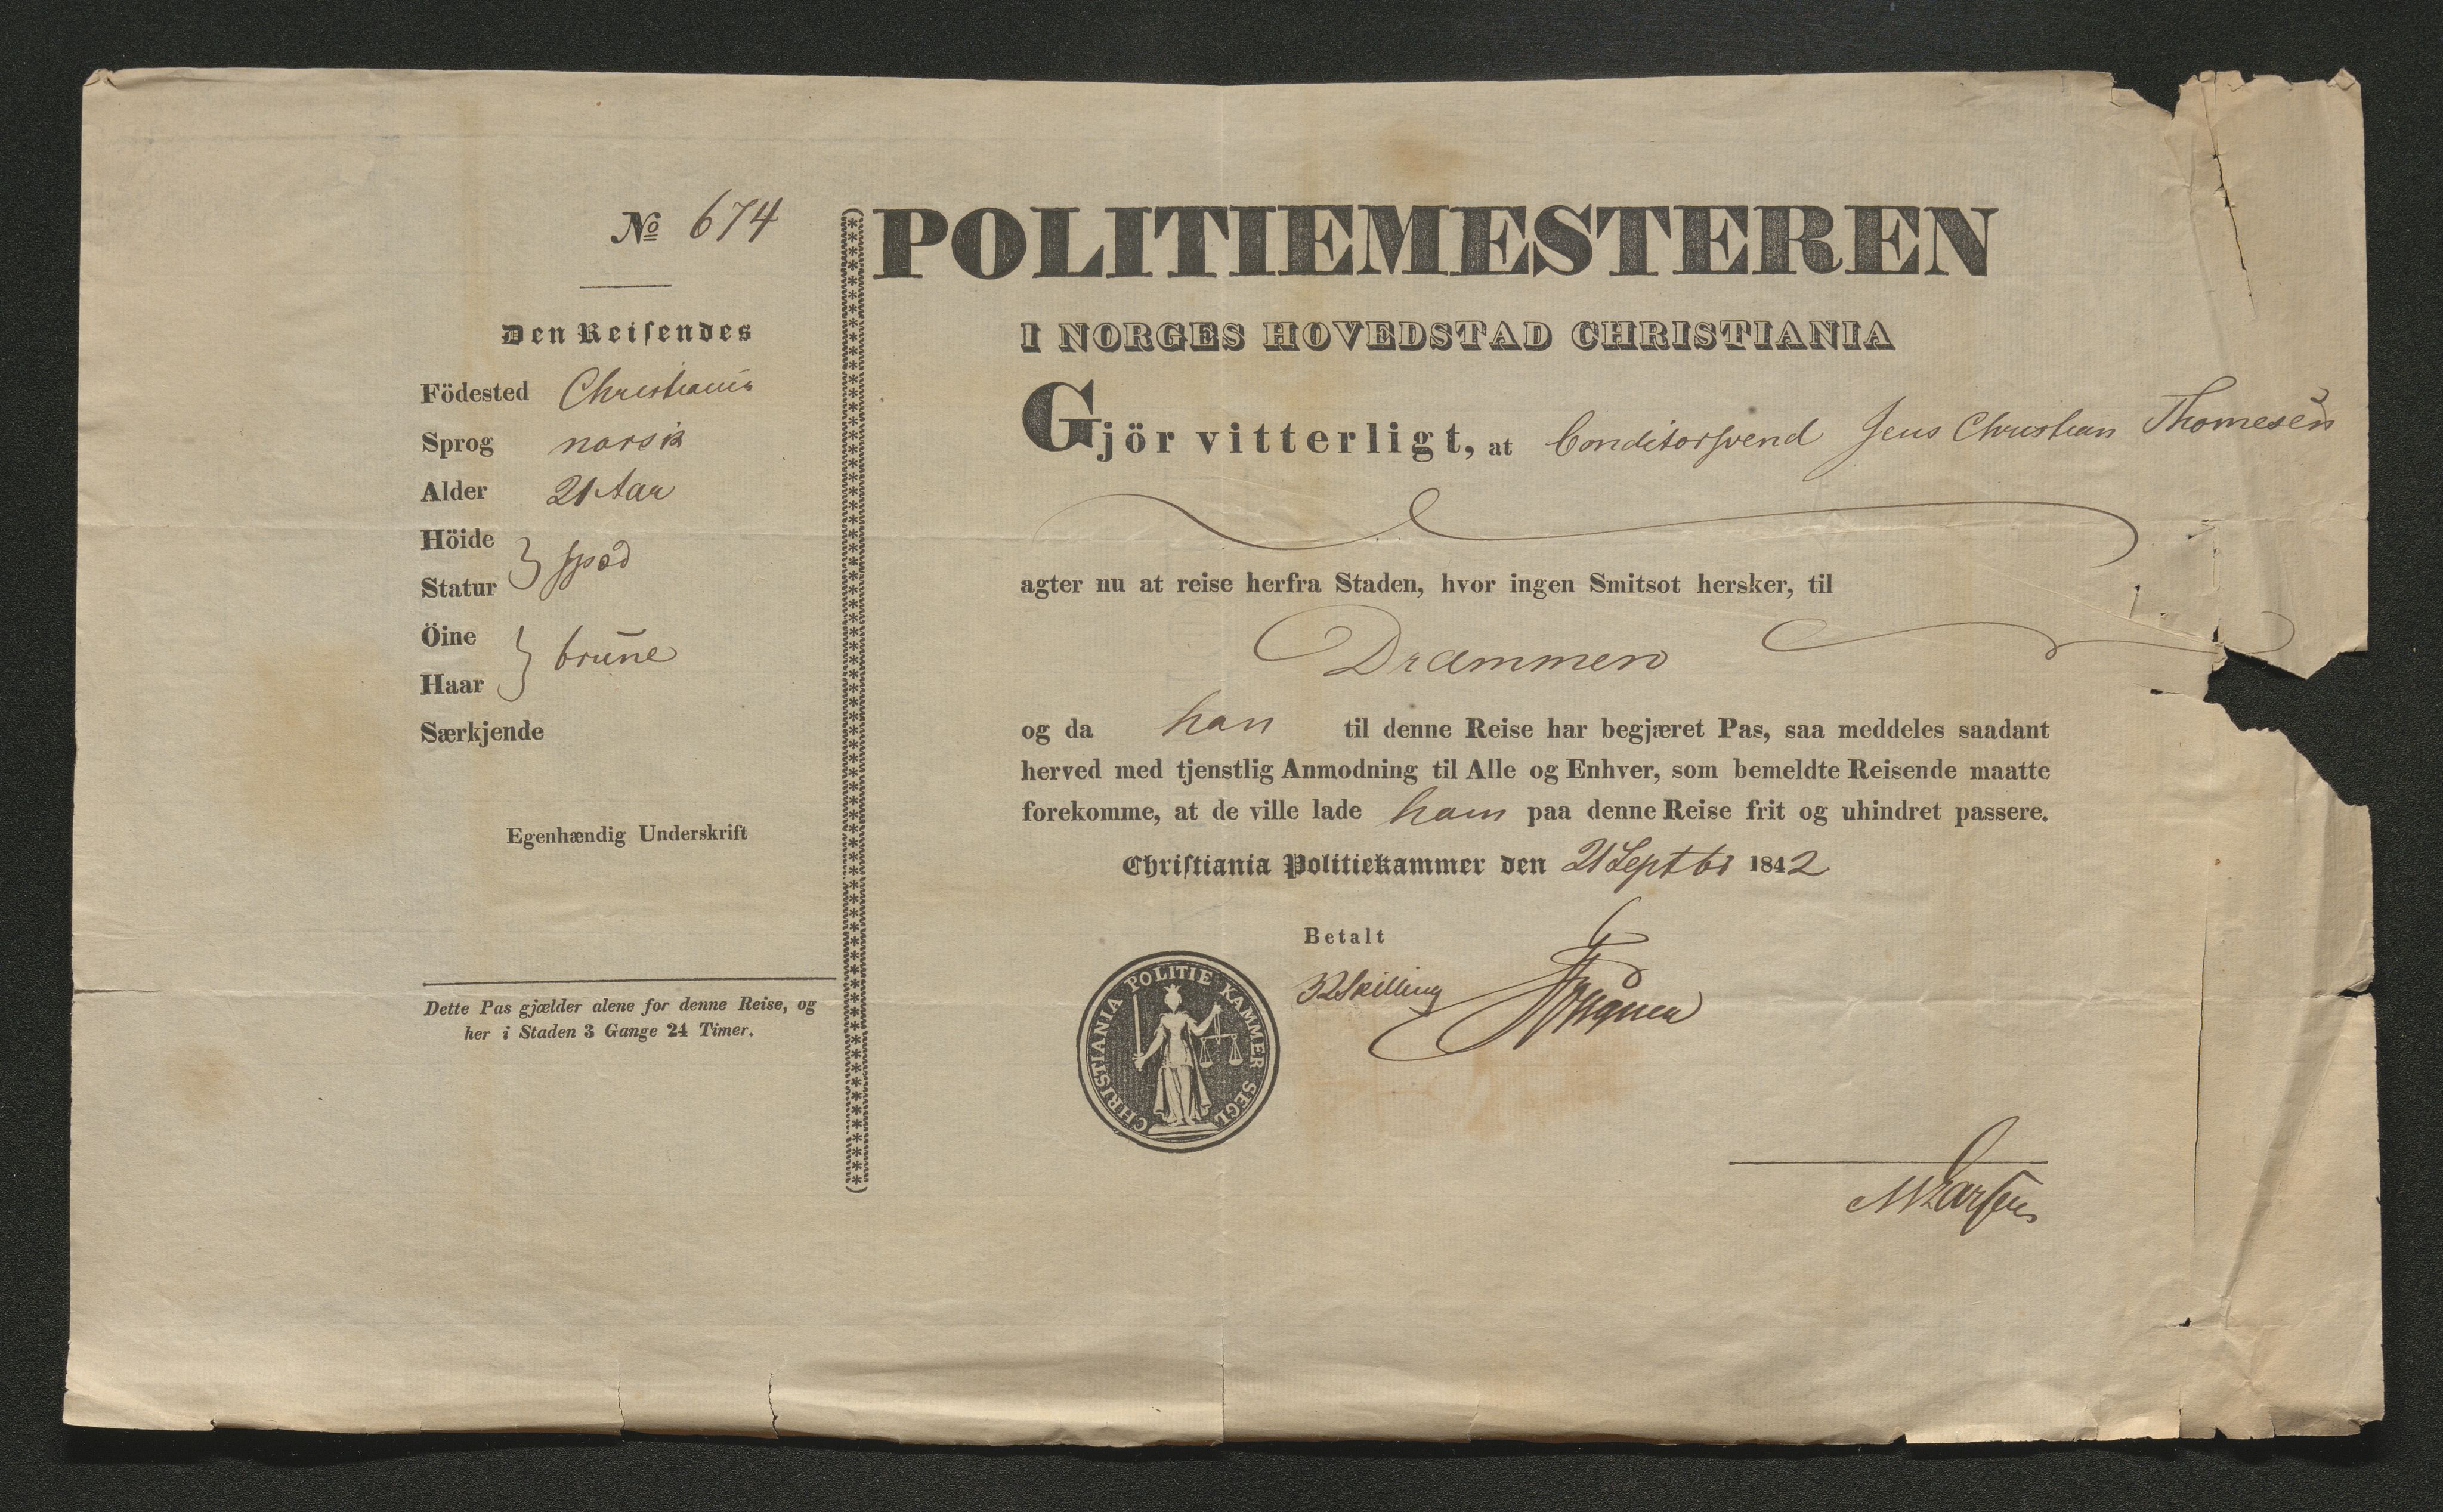 No 674
Den Reisendes
Födested Christiania
Sprog norsk
Alder 21 Aar
Höide
Statur } spæd
Öine
Haar } brune
Særkjende
Egenhændig Underskrift
Dette Pas gjælder alene for denne Reise, og
her i Staden 3 Gange 24 Timer.
POLITIEMESTEREN
I NORGES HOVEDSTAD CHRISTIANIA
Gjör vitterligt, at Conditorsvend Jens Christian Thomesen
agter nu at reise herfra Staden, hvor ingen Smitsot hersker, til
Drammen
og da han til denne Reise har begjæret Pas, saa meddeles saadant
herved med tjenstlig Anmodning til Alle og Enhver, som bemeldte Reisende maatte
forekomme, at de ville lade ham paa denne Reise frit og uhindret passere.
Christiania Politiekammer den 21 Septbr 1842
Betalt
32 Skilling
CHRISTIANIA POLITIE KAMMER SEGL
MLarsen